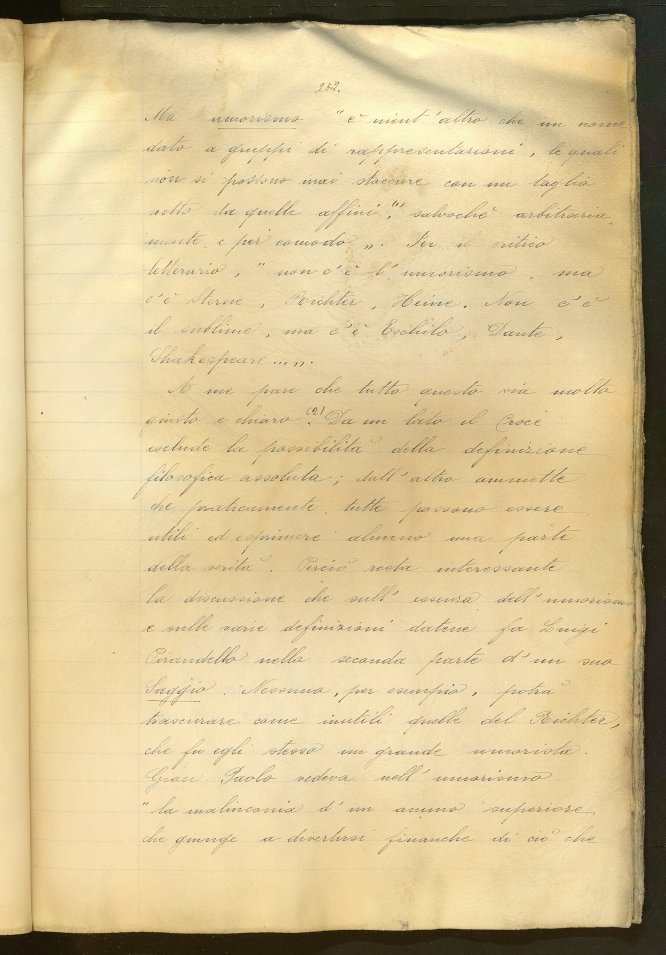 252.
Ma umorismo "è nient'altro che un nome
dato a gruppi di rappresentazioni, le quali
non si possono mai staccare con un taglio
netto da quelle affini,(1) salvochè arbitraria-
mente e per comodo„. Per il critico
letterario, "non c'è l'umorismo, ma
c'è Sterne, Richter, Heine. Non c'è
il sublime, ma c'è Eschilo, Dante,
Shakespeare...„.
A me pare che tutto questo sia molto
giusto e chiaro.(2) Da un lato il Croce
esclude la possibilità della definizione
filosofica assoluta; dall'altro ammette
che praticamente tutte possono essere
utili ed esprimere almeno una parte
della verità. Perciò resta interessante
la discussione che sull'essenza dell'umorismo
e sulle varie definizioni datene fa Luigi
Pirandello nella seconda parte d'un suo
Saggio. Nessuno, per esempio, potrà
trascurare come inutili quelle del Richter,
che fu egli stesso un grande umorista.
Gian Paolo vedeva nell'umorismo
"la malinconia d'un animo superiore
che giunge a divertirsi finanche di ciò che